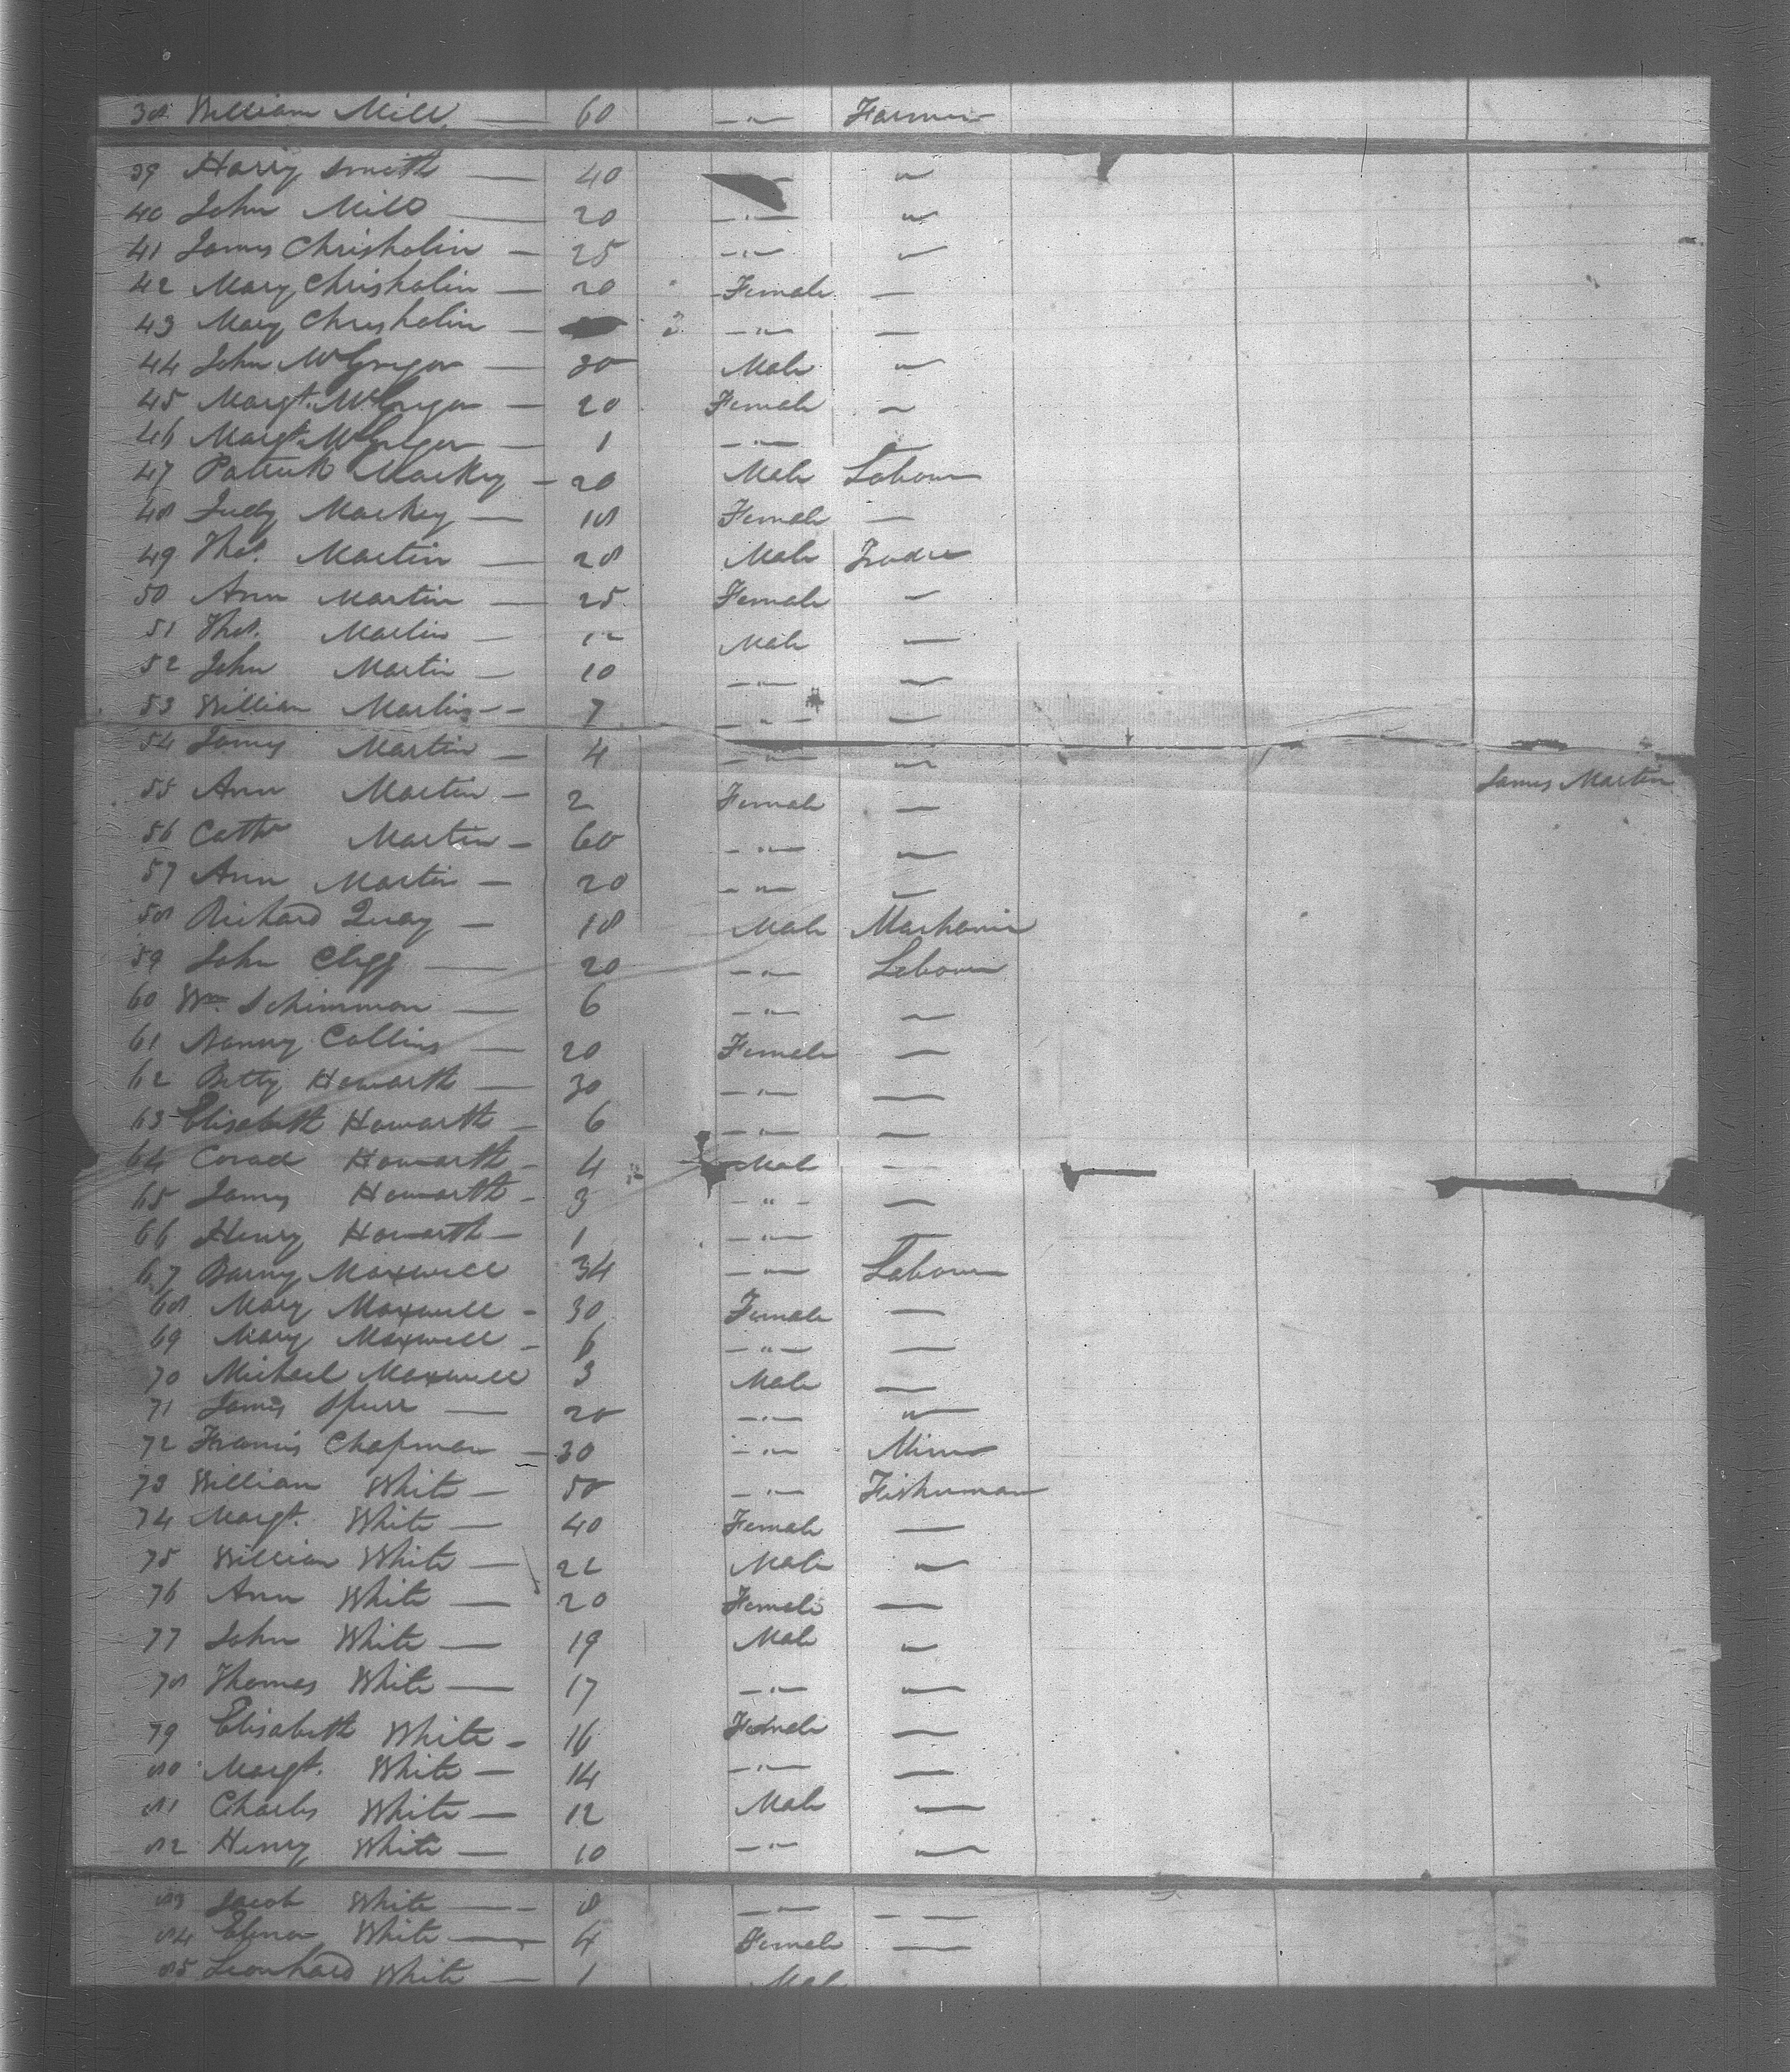 38 William Mill — 60 — " — Farmer
39 Harry Smith — 40 — "
40 John Mill — 20 — " — "
41 James Chrisholin — 25 — " — "
42 Mary Chrisholin — 20 Female —
43 Mary Chrisholin — 2 — " — —
44 John McGregor — 30 Male "
45 Margt. McGregor — 20 Female "
46 Margt. McGregor — 1 — " —
47 Patrick Mackey — 20 Male Labour
48 Judy Mackey — 18 Female —
49 Thos. Martin — 28 Male
50 Ann Martin — 25 Female —
51 Thos. Martin — 12 Male —
52 John Martin — 10 — " — —
53 William Martin — 7 — " — —
54 James Martin — 4 — " — "
James Martin
55 Ann Martin — 2 Female —
56 Cathr Martin — 60 — " — —
57 Ann Martin — 20 — " — —
58 Richard Quay — 18 Male Machanic
59 John Clegg — 20 — " — Labour
60 Wm. Schimmon — 6 — " — —
61 Nanny Collins — 20 Female —
62 Betty Howarth — 30 — " — —
63 Elisabeth Howarth — 6 — " — —
64 Howarth — 4 Male —
65 James Howarth — 3 — " — —
66 Henry Howarth — 1 — " — —
67 Barny Maxwell 34 — " — Labour
68 Mary Maxwell — 30 Female —
69 Mary Maxwell — 6 — " — —
70 Michael Maxwell 3 Male —
71 James Spurr — 20 — " — "
72 Francis Chapman — 30 — " — Miner
73 William White — 50 — " — Fisherman
74 Margt. White — 40 Female —
75 William White — 22 Male "
76 Ann White — 20 Female —
77 John White — 19 Male "
78 Thomas White — 17 — " — "
79 Elisabeth White — 16 Female —
80 Margt. White — 14 — " — —
81 Charles White — 12 Male —
82 Henry White — 10 — " — —
83 Jacob White — 8 — " — — —
84 Elenor White — 4 Female —
85 Leonhard White — 1 Male